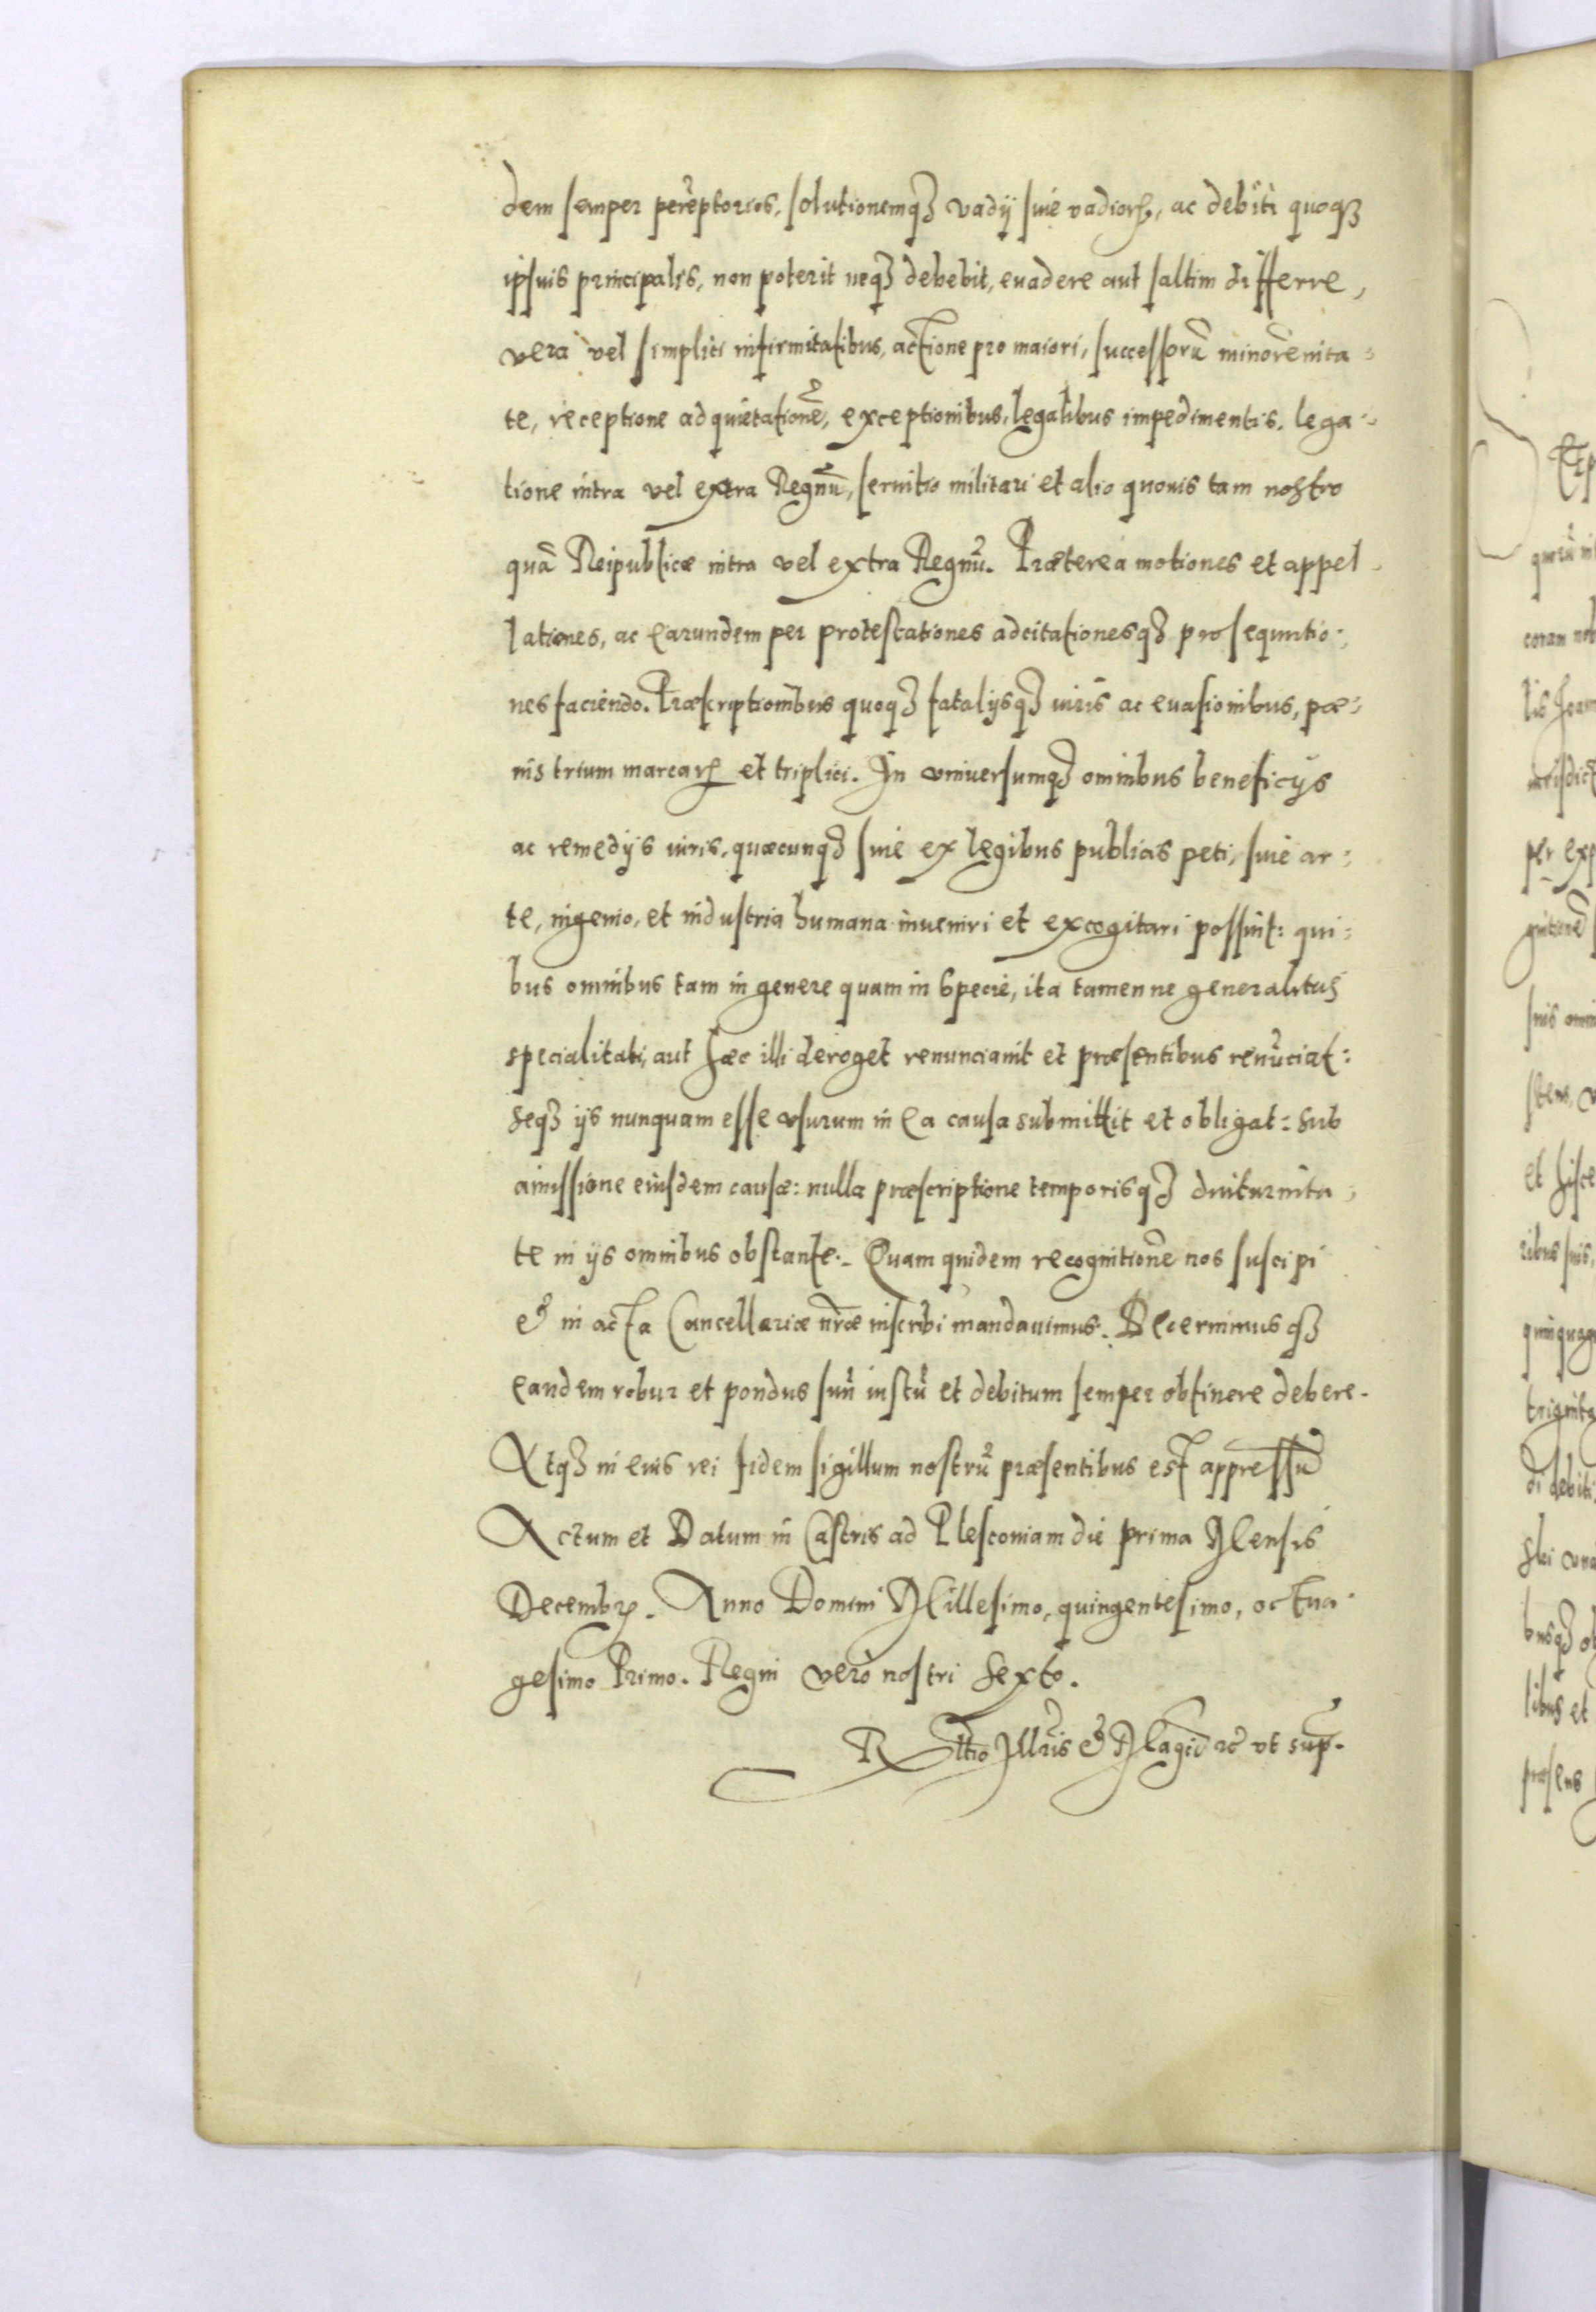 dem semper perēptorios, solutionemqꝫ vadij siue vadiorꝝ, ac debiti quoqꝫ
ipsius principalis, non poterit neqꝫ debebit, euadere aut saltim differre,
vera vel simplici infirmitatibus, actione pro maiori, successorū minorēnita-
te, receptione ad quietationē, exceptionibus, legalibus impedimentis, lega-
tione intra vel extra Regnū, seruitio militari et alio quouis tam nostro
quā Reipublicæ intra vel extra Regnū. Præterea motiones et appel-
lationes, ac earundem per protestationes adcitationesqꝫ prosequutio:
nes faciendo. Præscriptionibus quoqꝫ fatalijsqꝫ iuris ac euasionibus, pæ-
nis trium marcarꝝ et triplici. In vniuersumqꝫ omnibus beneficijs
ac remedijs iuris, quæcunqꝫ siue ex legibus publicis peti, siue ar:
te, ingenio, et industria humana inueniri et excogitari possint: qui:
bus omnibus tam in genere quam in specie, ita tamen ne generalitas
specialitati, aut hæc illi deroget renunciauit et præsentibus renūciat:
seqꝫ ijs nunquam esse vsurum in ea causa submittit et obligat: sub
amissione eiusdem causæ: nulla præscriptione temporisqꝫ diuturnita-
te in ijs omnibus obstante. Quam quidem recognitionē nos suscipi
& in acta Cancellariæ nr̄æ inscribi mandauimus. Decernimusqꝫ
eandem robur et pondus suū iustū et debitum semper obtinere debere.
Atqꝫ in eius rei fidem sigillum nostrū præsentibus est appressū
Actum et Datum in Castris ad Plesconiam die prima Mensis
Decembrꝭ. Anno Domini Millesimo, quingentesimo, octua-
gesimo Primo. Regni vero nostri sexto.
Rltio Illris & Magci &c vt sup.